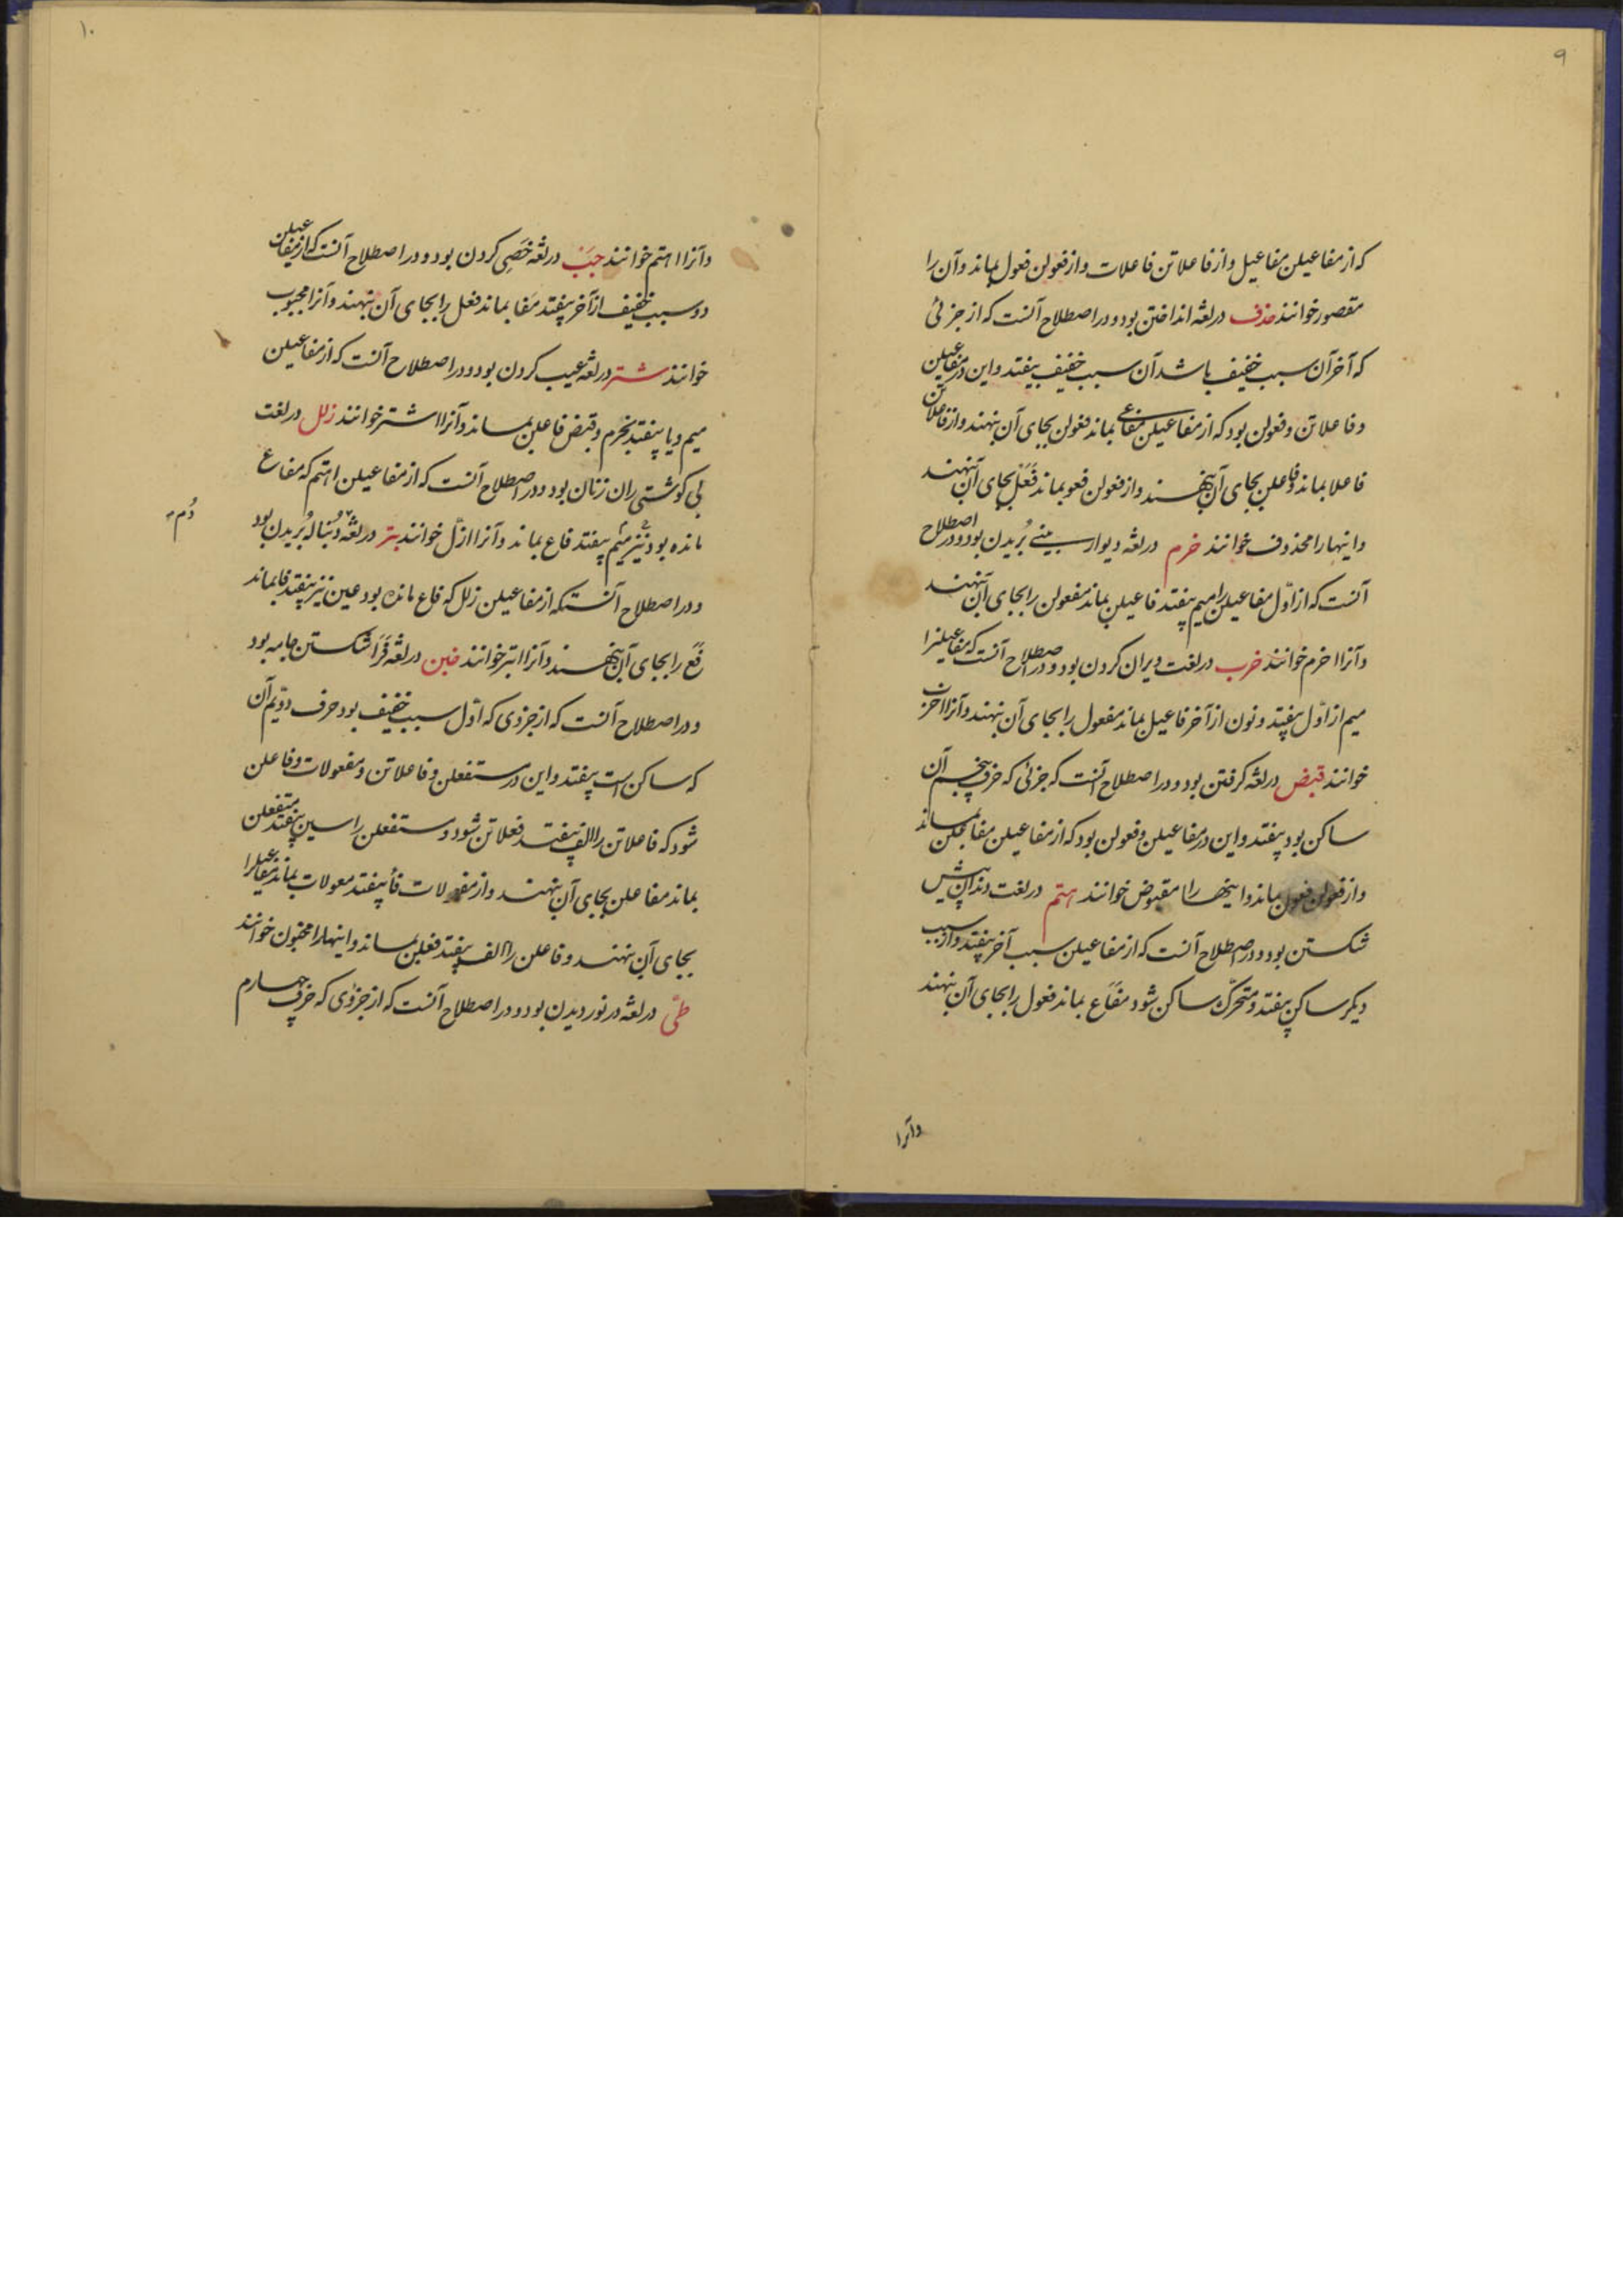 ۹
که از مفاعیلن مفاعیل و از فاعلاتن فاعلات و از فعولن فعول بماند و آن را
مقصور خوانند حذف در لغة انداختن بود و در اصطلاح آنست که از جزئی
که آخر آن سبب خفیف باشد آن سبب خفیف بیفتد و این در مفاعیلن
و فاعلاتن و فعولن بود که از مفاعیلن مفاعی بماند فعولن بجای آن بنهند و از فاعلاتن
فاعلا بماند و فاعلن بجای آن بنهند و از فعولن فعو بماند فَعَلْ بجای آن بنهند
و اینها را محذوف خوانند خرم در لغة دیوار بینی بُریدن بود و در اصطلاح
آنست که از اوّل مفاعیلن را میم بیفتد فاعیلن بماند مفعولن را بجای آن بنهند
و آنرا اخرم خوانند خرب در لغت ویران کردن بود و در اصطلاح آنست که مفاعیلنرا
میم از اوّل بیفتد و نون از آخر فاعیل بماند مفعول را بجای آن بنهند و آنرا اخرب
خوانند قبض در لغة کرفتن بود و در اصطلاح آنست که جزئی که حرف پنجم آن
ساکن بود بیفتد و این در مفاعیلن و فعولن بود که از مفاعیلن مفاعلن بماند
و از فعولن فعول بماند و اینها را مقبوض خوانند هتم در لغت دندان پیش
شکستن بود و در اصطلاح آنست که از مفاعیلن سبب آخر بیفتد و از سبب
دیکر ساکن بیفتد و متحرّک ساکن شود مفاع بماند فعول را بجای آن بنهند
و آنرا
۱۰
و آنرا اهتم خوانند جبّ در لغة خَصِی کردن بود و در اصطلاح آنست که از مفاعیلن
دو سبب خفیف از آخر بیفتد مَفا بماند فعل را بجای آن بنهند و آنرا مجبوب
خوانند شتر در لغة عیب کردن بود و در اصطلاح آنست که از مفاعیلن
میم و یا بیفتد بخرم و قبض فاعلن بماند و آنرا اشتر خوانند زلل در لغت
بی کوشتی ران زنان بود و در اصطلاح آنست که از مفاعیلن اهتم که مفاع
مانده بود نیز میم بیفتد فاع بماند و آنرا ازلّ خوانند بتر در لغة دُنباله بُریدن بود
دُم
و در اصطلاح آنستکه از مفاعیلن زلل که فاع مانده بود عین نیز بیفتد فا بماند
فَع را بجای آن بنهند و آنرا ابتر خوانند خبن در لغة فرَا شکستن جامه بود
و در اصطلاح آنست که از جزوی که اوّل سبب خفیف بود حرف دوّیم آن
که ساکن است بیفتد و این در مستفعلن و فاعلاتن و مفعولات و فاعلن
شود که فاعلاتن را الف بیفتد فعلاتن شود و مستفعلن را سین بیفتد متفعلن
بماند مفاعلن بجای آن بنهند و از مفعولات فأ بیفتد معولات بماند مفاعیل را
بجای آن بنهند و فاعلن را الف بیفتد فعلن بماند و اینها را مخبون خوانند
طیّ در لغة در نوردیدن بود و در اصطلاح آنست که از جزوی که حرف چهارم